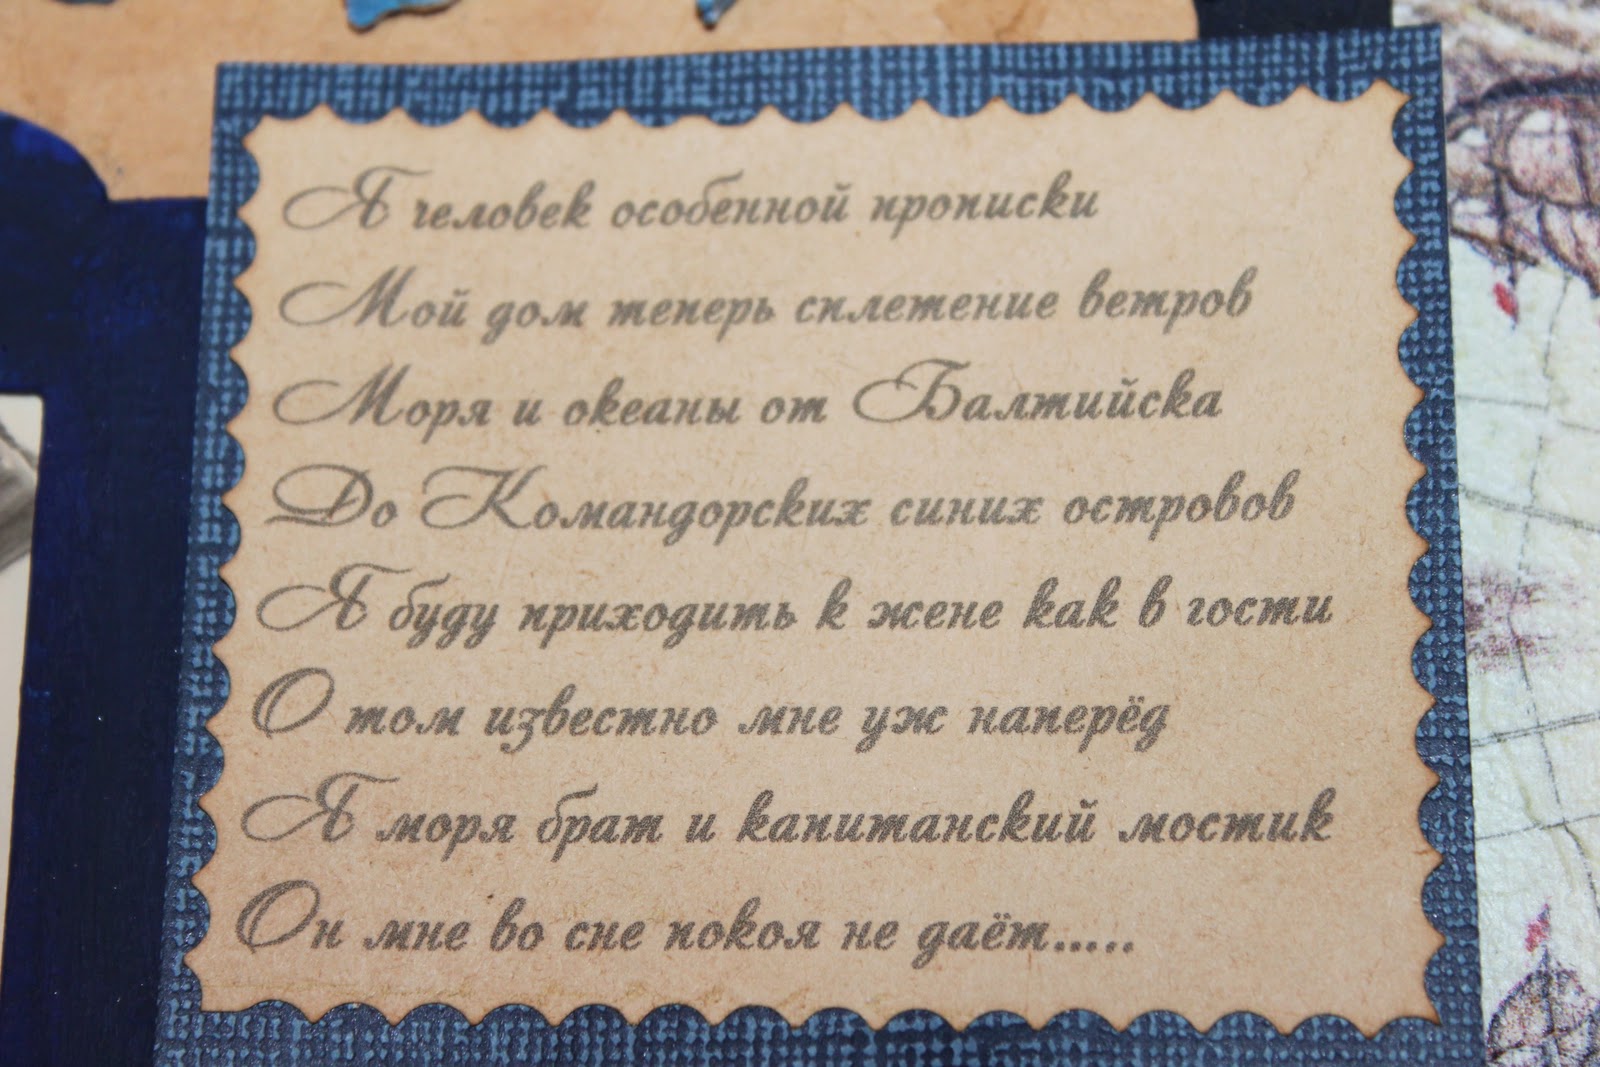 Я человек особенной прописки
Мой дом теперь сплетение ветров
Моря и океаны от Балтийска
До Командорских синих островов
Я буду приходить к жене как в гости
О том известно мне уж наперёд
Я моря брат и капитанский мостик
Он мне во сне покоя не даёт.....